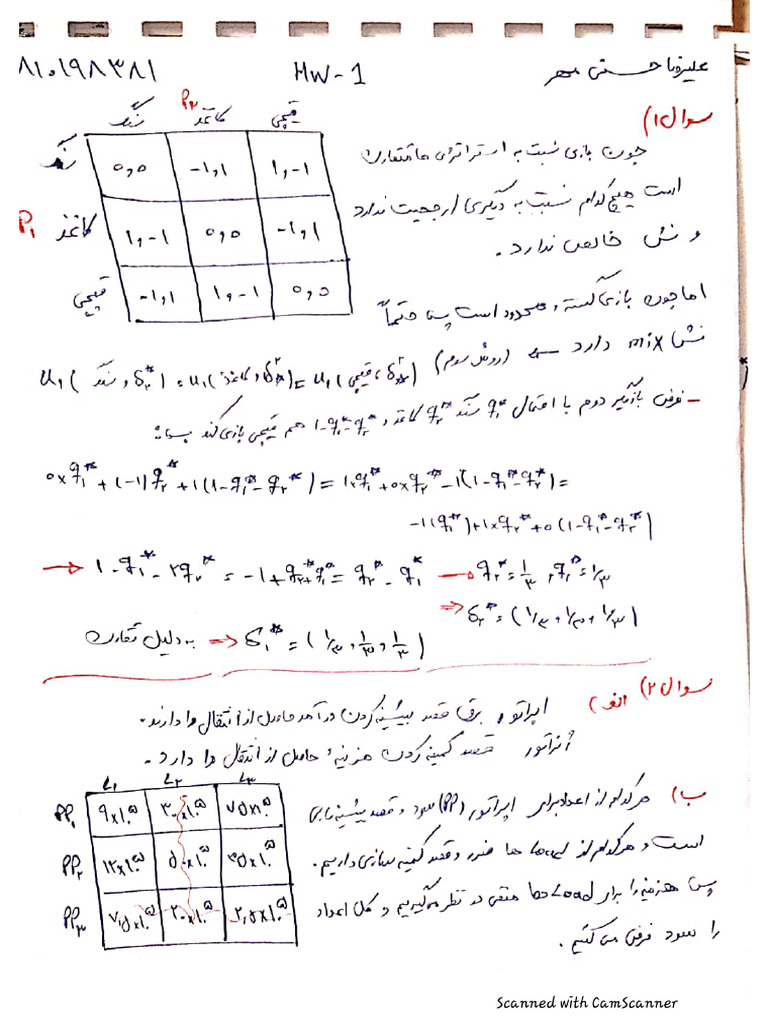 علیرضا حسنی مهر HW-1 ۸۱۰۱۹۸۳۸۱
سوال ۱)
P۲
سنگ کاغذ قیچی
سنگ 0,0 -1,1 1,-1
P۱ کاغذ 1,-1 0,0 -1,1
قیچی -1,1 1,-1 0,0
چون بازی نسبت به استراتژی ها متقارن
است هیچ کدام نسبت به دیگری ارجحیت ندارد
و نش خالص ندارد.
اما چون بازی گسسته و محدود است پس حتماً
نش mix دارد (روش سوم)
u₁(سنگ , δ₂*) = u₁(کاغذ , δ₂*) = u₁(قیچی , δ₂*)
- فرض بازیگر دوم با احتمال q₁* سنگ q₂* کاغذ و 1-q₁*-q₂* هم قیچی بازی کند پس:
0×q₁* + (-1)q₂* + 1(1-q₁*-q₂*) = 1×q₁* + 0×q₂* -1(1-q₁*-q₂*) =
-1(q₁*) + 1×q₂* + 0(1-q₁*-q₂*)
→ 1-q₁*-۲q₂* = -1+q₂*+۲q₁* = q₂*-q₁* → q₂* = 1/۳ , q₁* = 1/۳
⇒ δ₂* = (1/۳ , 1/۳ , 1/۳)
به دلیل تقارن ⇒ δ₁* = (1/۳ , 1/۳ , 1/۳)
سوال ۲) الف) اپراتور برق قصد بیشینه کردن درآمد حاصل از انتقال را دارند.
اپراتور قصد کمینه کردن هزینه حاصل از انتقال را دارد.
L₁ L₂ L₃
PP₁ ۹×۱۰^۵ ۳۰×۱۰^۵
PP₂ ۱۲×۱۰^۵ ۵۰×۱۰^۵ ۳۵×۱۰^۵
PP₃ ۷,۵×۱۰^۵ ۲۰×۱۰^۵ ۲,۵×۱۰^۵
ب) هر کدام از اعداد برای اپراتور (PP) سود و قصد بیشینه یابی
است و هر کدام از load ها ضرر و قصد کمینه سازی داریم.
پس هزینه را برای Load ها منفی در نظر می گیریم و کل اعداد
را سود فرض می کنیم.
Scanned with CamScanner